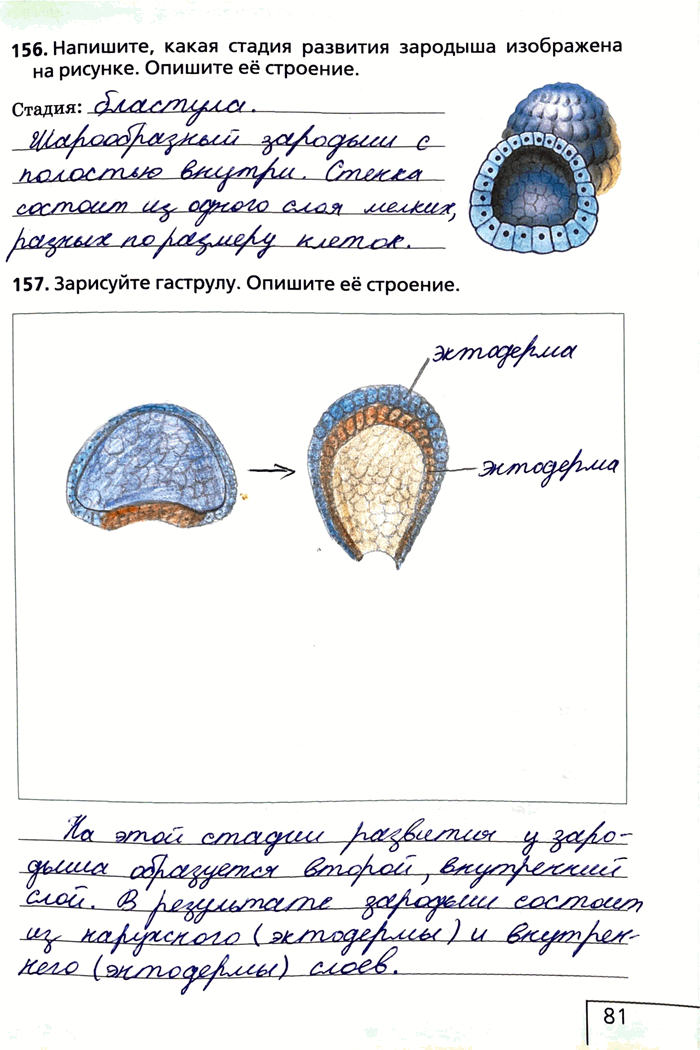 156. Напишите, какая стадия развития зародыша изображена
на рисунке. Опишите её строение.
Стадия: бластула.
Шарообразный зародыш с
полостью внутри. Стенка
состоит из одного слоя мелких,
разных по размеру клеток.
157. Зарисуйте гаструлу. Опишите её строение.
эктодерма
энтодерма
На этой стадии развития у заро-
дыша образуется второй, внутренний
слой. В результате зародыш состоит
из наружного (эктодермы) и внутрен-
него (энтодермы) слоев.
81